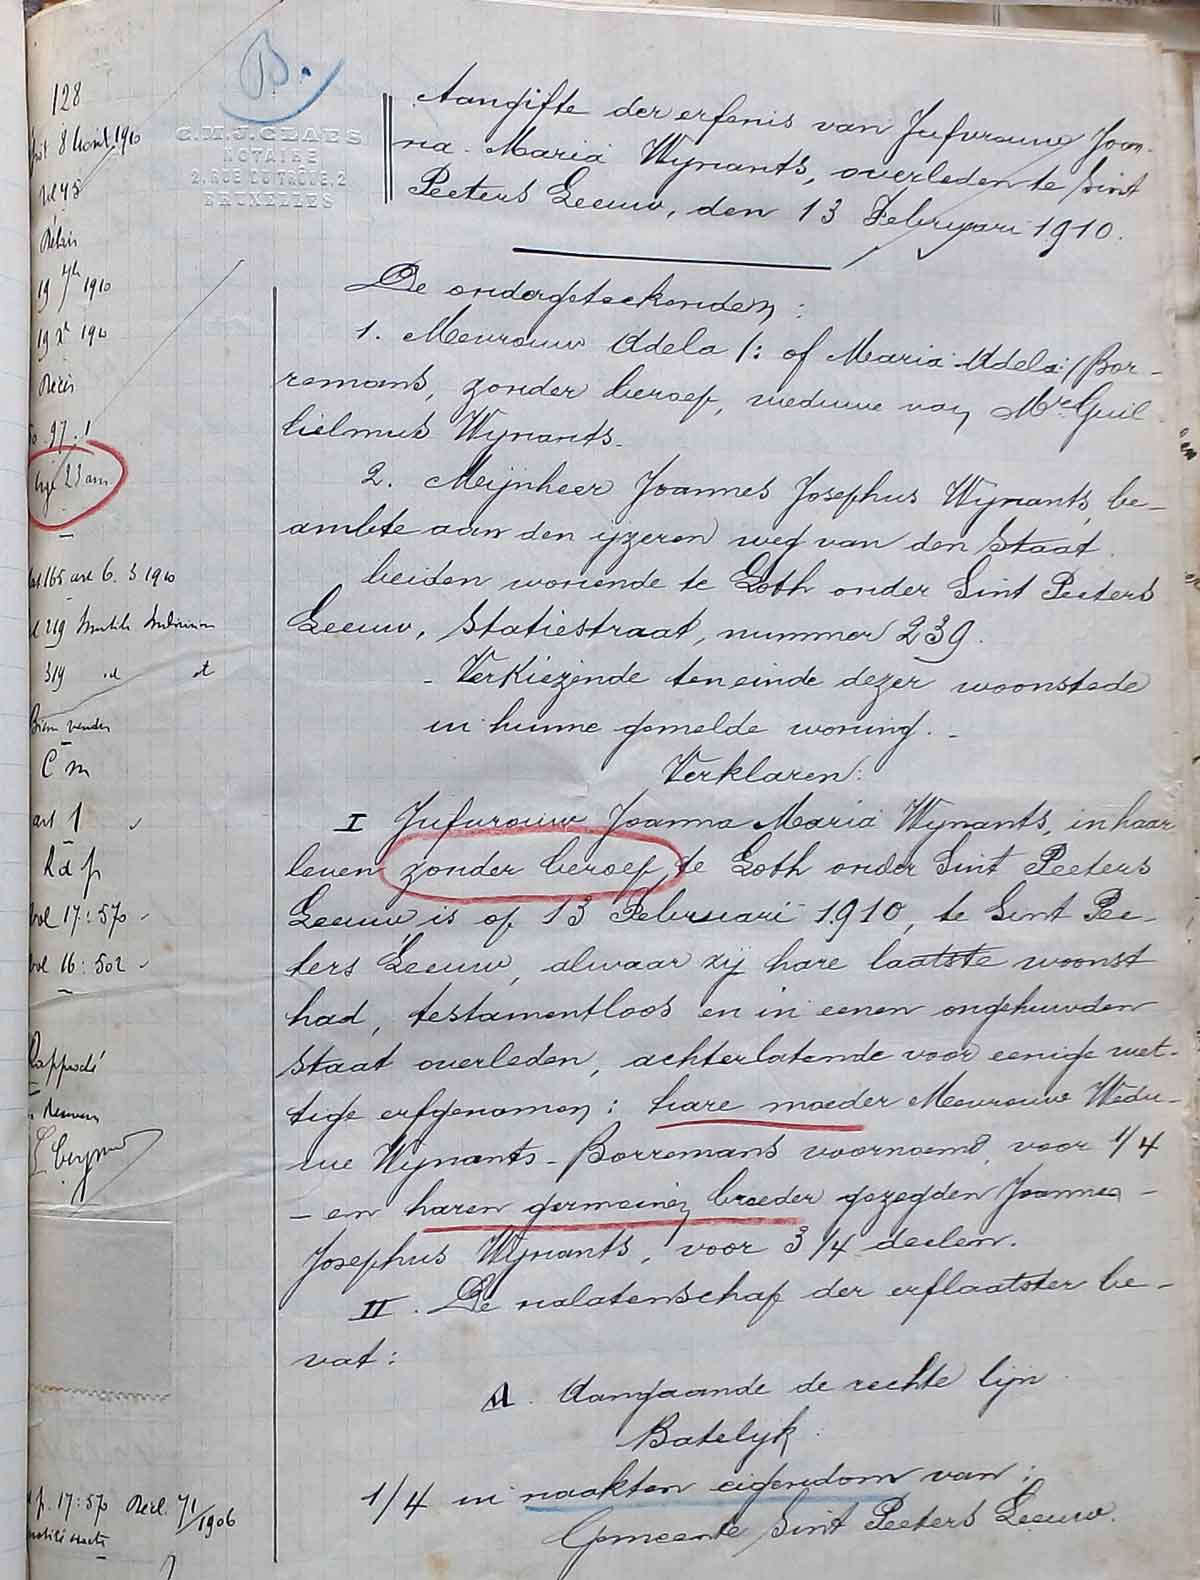 B.
128
8 1910
C.M.J. CLAES
NOTAIRE
2, RUE DU TRÔNE, 2
BRUXELLES
Aangifte der erfenis van Jufvrouw Joan-
na-Maria Wynants, overleden te Sint
Peeters Leeuw, den 13 Februari 1910.
19 1910
19 Xe 190
Décès
97.1
23 ans
165 art 6. 3 1910
219
319 id et
C m
art 1
R d p
vol 17:570
vol 16:502
17:570 Decl 7/1/1906
De ondergeteekenden:
1. Mevrouw Adela /: of Maria Adela:/ Bor-
remans, zonder beroep, weduwe van Mr Guil-
lielmus Wynants.
2. Meijnheer Joannes Josephus Wynants, be-
ambte aan den yzeren weg van den Staat.
beiden wonende te Loth onder Sint Peeters
Leeuw, Statiestraat, nummer 239.
- Verkiezende ten einde dezer woonstede
in hunne gemelde woning. -
Verklaren:
I Jufvrouw Joanna Maria Wynants, in haar
leven zonder beroep, te Loth onder Sint Peeters
Leeuw is op 13 Februari 1910, te Sint Pee-
ters Leeuw, alwaar zij hare laatste woonst
had, testamentloos en in eenen ongehuwden
staat overleden, achterlatende voor eenige wet-
tige erfgenamen: hare moeder Mevrouw Wedu-
we Wynants-Borremans voornoemd, voor 1/4
- en haren germeinen broeder gezegden Joannes-
Josephus Wynants, voor 3/4 deelen.
II. De nalatenschap der erflaatster be-
vat:
A. Aangaande de rechte lijn.
Batelyk:
1/4 in naakten eigendom van:
Gemeente Sint Peeters Leeuw.